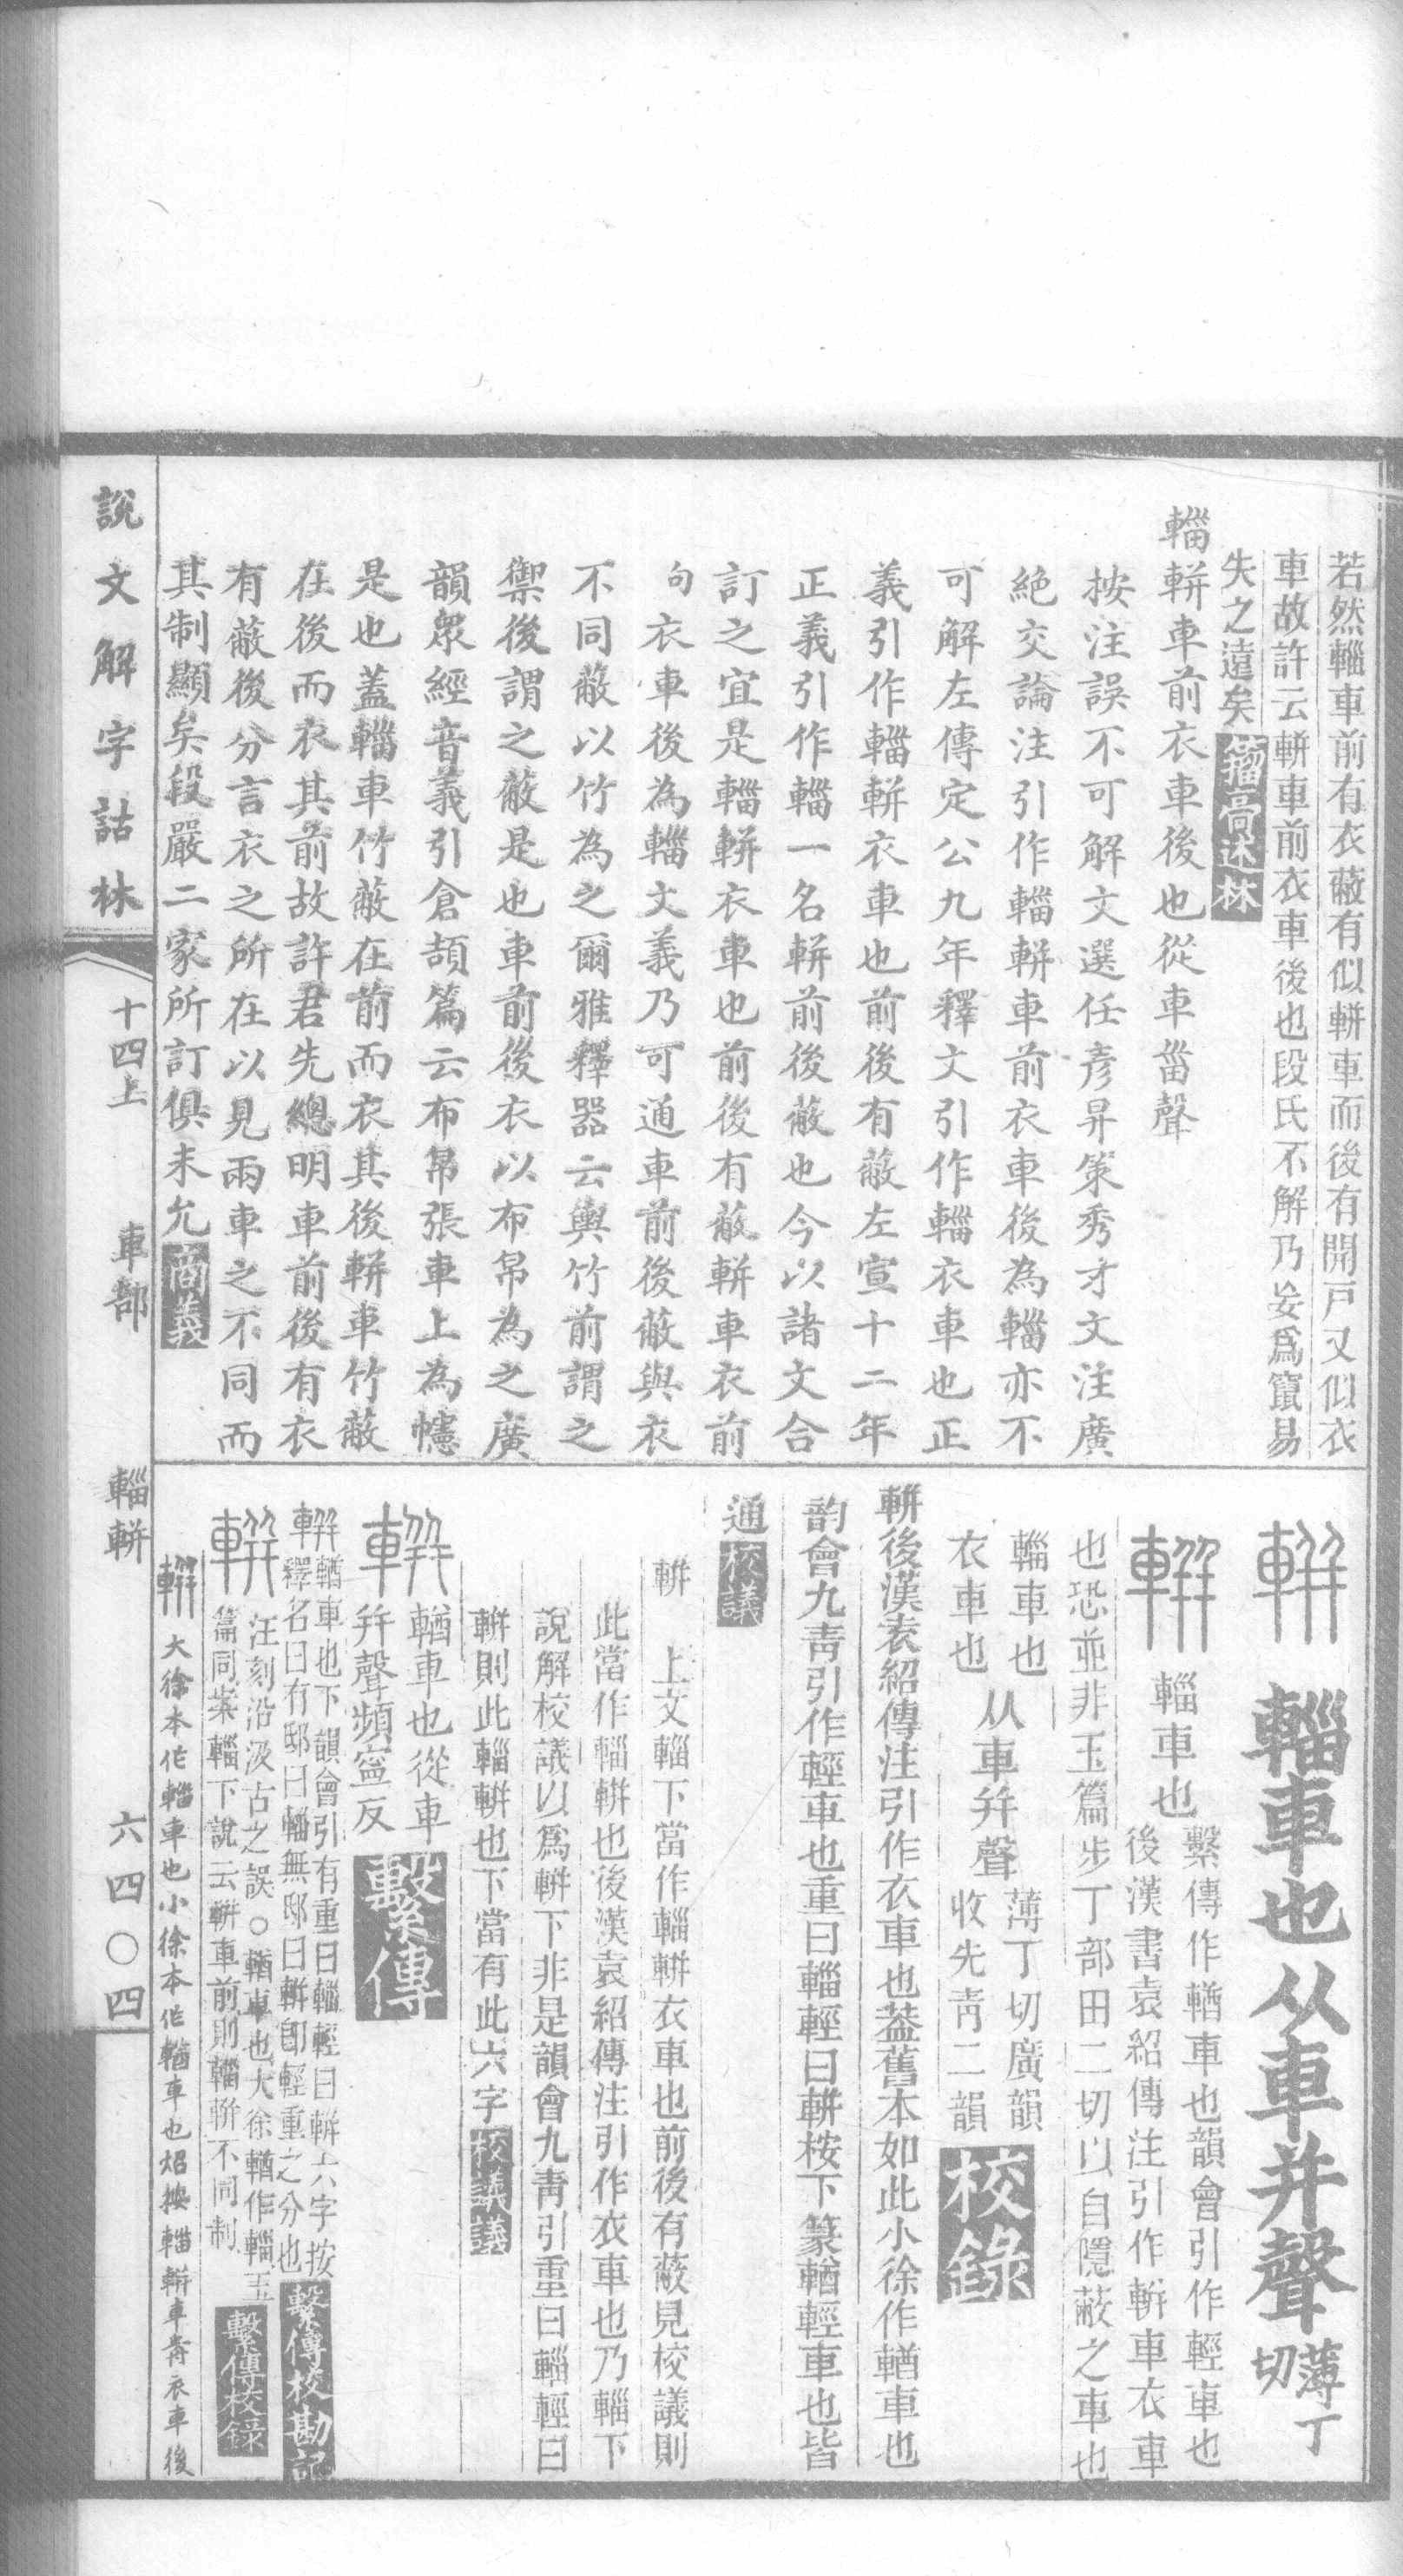 若然輜車前有衣蔽有似軿車而後有開戸又似衣
車故許云軿車前衣車後也段氏不解乃妄爲竄易
失之遠矣 籀高述林
輜軿車前衣車後也從車甾聲
按注誤不可解文選任彥昇策秀才文注廣
絕交論注引作輜軿車前衣車後為輜亦不
可解左傳定公九年釋文引作輜衣車也正
義引作輜軿衣車也前後有蔽左宣十二年
正義引作輜一名軿前後蔽也今以諸文合
訂之宜是輜軿衣車也前後有蔽軿車衣前
句衣車後為輜文義乃可通車前後蔽與衣
不同蔽以竹為之爾雅釋器云輿竹前謂之
禦後謂之蔽是也車前後衣以布帛為之廣
韻眾經音義引倉頡篇云布帛張車上為幰
是也蓋輜車竹蔽在前而衣其後軿車竹蔽
在後而衣其前故許君先總明車前後有衣
有蔽後分言衣之所在以見兩車之不同而
其制顯矣段嚴二家所訂俱未允 商義
軿 輜車也从車并聲 薄丁切
軿 輜車也 繫傳作輶車也韻會引作輕車也
後漢書袁紹傳注引作軿車衣車
也恐並非玉篇步丁部田二切以自隱蔽之車也
輜車也
衣車也
从車并聲 薄丁切廣韻
收先靑二韻 校錄
軿後漢袁紹傳注引作衣車也葢舊本如此小徐作輶車也
韵會九靑引作輕車也重曰輜輕曰軿桉下篆輶輕車也皆
通 校議
軿 上文輜下當作輜軿衣車也前後有蔽見校議則
此當作輜軿也後漢袁紹傳注引作衣車也乃輜下
說解校議以爲軿下非是韻會九靑引重曰輜輕曰
軿則此輜軿也下當有此六字 校議議
軿 輶車也從車
并聲頻寧反 繫傳
軿輶車也下韻會引有重曰輜輕曰軿六字按
釋名曰有邸曰輜無邸曰軿卽輕重之分也 繫傳校勘記
軿 汪刻沿汲古之誤○輶車也大徐輶作輜玉
篇同案輜下說云軿車前則輜軿不同制 繫傳校錄
軿 大徐本作輜車也小徐本作輶車也炤按輜軿車耑衣車後
說文解字詁林 十四上 車部 輜軿 六四〇四